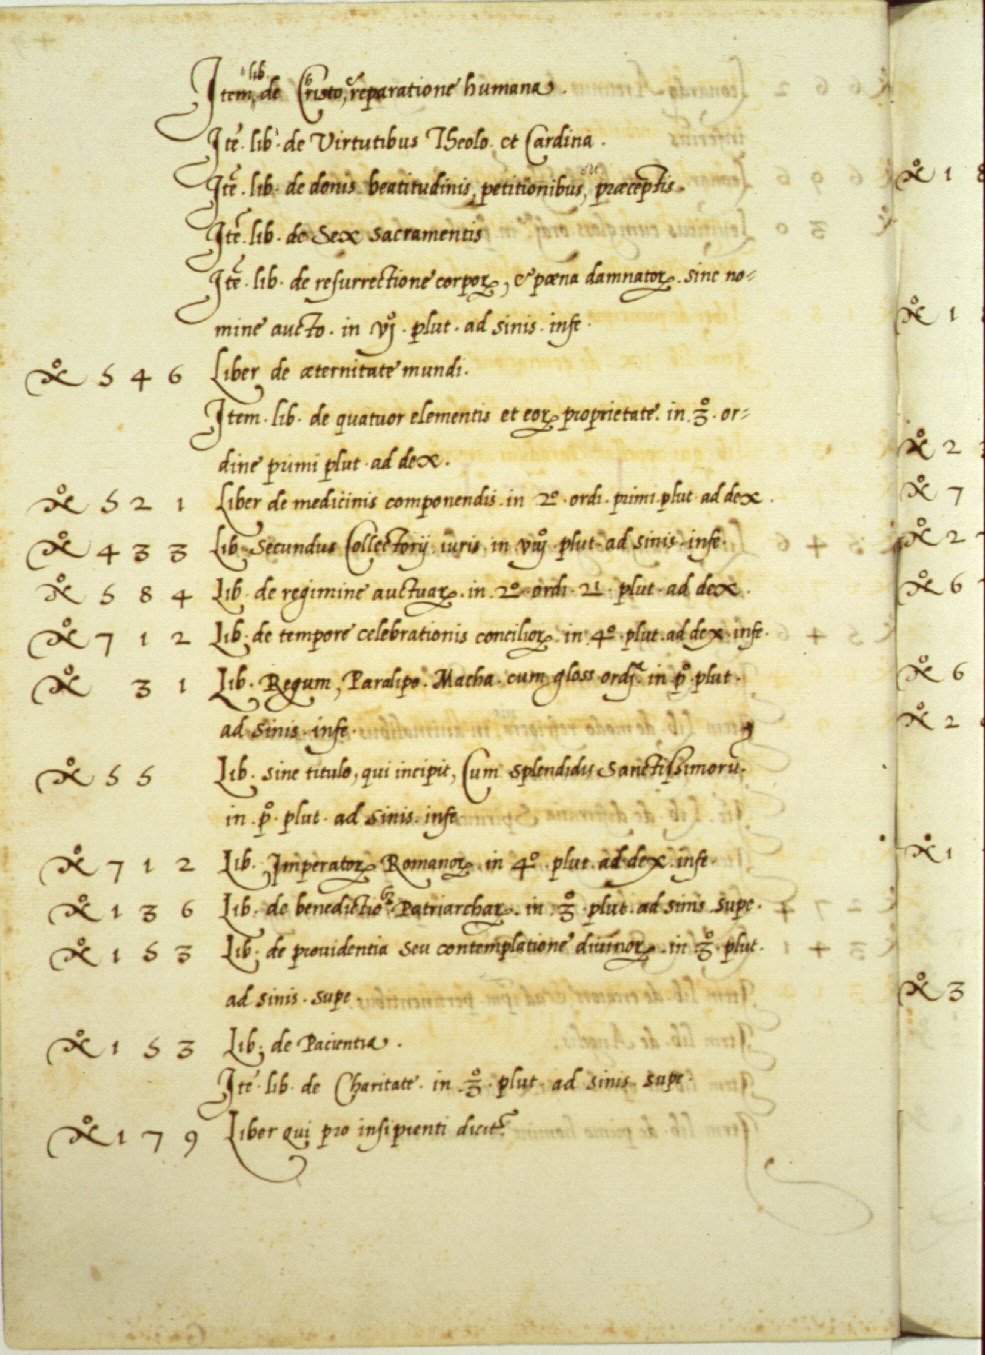 Item, lib. de Cristo, reparatione humana.
Itẽ. lib. de Virtutibus Theolo. et Cardina.
Itẽ. lib. de donis beatitudinis, petitionibus, præceptis.
Itẽ. lib. de Sex sacramentis
Itẽ. lib. de resurrectione corporꝝ, & pœna damnatorꝝ. sine no-
mine aucto. in vjº. plut. ad sinis. infe.
Nº 546 Liber de æternitate mundi.
Item. lib. de quatuor elementis et eorꝝ proprietate. in 3º. or-
dine primi plut. ad dex.
Nº 521 Liber de medicinis componendis. in 2º. ordi. primi plut. ad dex.
Nº 433 Lib. Secundus Collectorij iuris. in viijº plut. ad sinis. infe.
Nº 584 Lib. de regimine auctuarꝝ. in 2º ordi. 21. plut. ad dex.
Nº 712 Lib. de tempore celebrationis conciliorꝝ. in 4º. plut. ad dex. infe.
Nº 31 Lib. Regum, Paralipo. Macha. cum gloss. ordiª. in pº. plut.
ad sinis. infe.
Nº 55 Lib. sine titulo, qui incipit, Cum splendidis Sanctissimorũ.
in pº. plut. ad sinis. infe.
Nº 712 Lib. Imperatorꝝ Romanorꝝ. in 4º. plut. ad dex. infe.
Nº 136 Lib. de benedictio. Patriarcharꝝ. in 3º. plut. ad sinis. supe.
Nº 153 Lib. de providentia seu contemplatione divinorꝝ. in 3º. plut.
ad sinis. supe.
Nº 153 Lib. de Pacientia.
Itẽ. lib. de Charitate. in 3º. plut. ad sinis. supe.
Nº 179 Liber qui pro insipienti dicit.